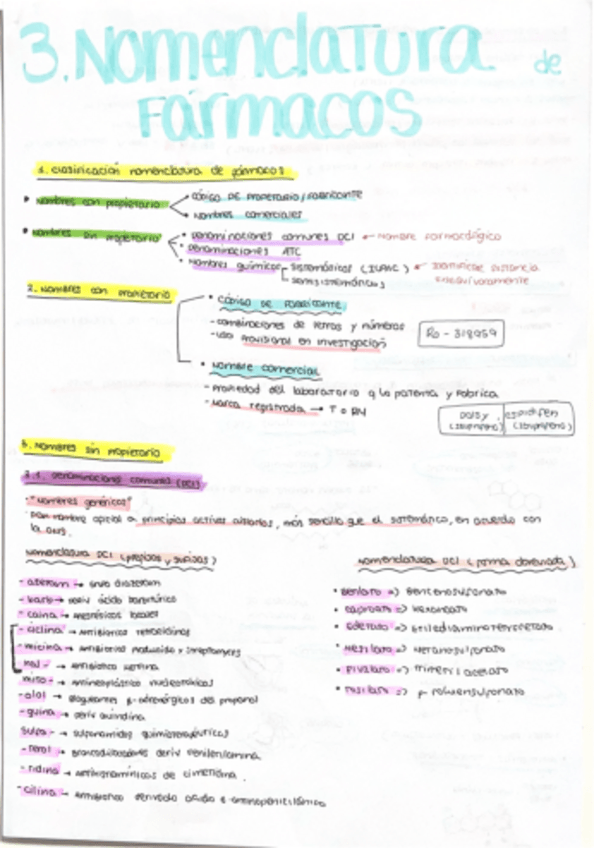 3. Nomenclatura de
Fármacos
1. Clasificación nomenclatura de fármacos
• Nombres con propietario
código de propietario/fabricante
• Nombres comerciales
• Nombres sin propietario
• Denominaciones comunes DCI ← Nombre farmacológico
• Denominaciones ATC
• Nombres químicos
sistemáticos (IUPAC) ← identificar sustancia
inequívocamente
semisistemáticos
2. Nombres con propietario
• Código de fabricante
- combinaciones de letras y números
- uso provisional en investigación
Ro - 318959
• Nombre comercial
- Propiedad del laboratorio q la patenta y fabrica
- Marca registrada →
(ibuprofeno)
Nombres sin propietario
Denominaciones comunes (DCI)
- "Nombres genéricos"
principios activos aislados, más sencillo que el sistemático, en acuerdo con
la OMS.
Nomenclatura DCI (prefijos y sufijos)
- azepam → grupo diazepam
- barb → deriv ácido barbitúrico
- caína → anestésicos locales
- ciclina → antibióticos
- micina → antibióticos producido x streptomyces
→ antibiótico
→ antineoplástico nucleotóxicos
- olol → bloqueantes β-adrenérgicos del propanol
→ deriv quinidina
sulfa - → sulfonamidas quimioterapéuticas
- terol → broncodilatadores deriv fenilenilamina
- tidina → antihistamínicos de cimetidina.
- cilina → Antibiótico derivado ácido 6-aminopenicilánico
Nomenclatura DCI (forma abreviada)
• Besilato => bencenosulfonato
• caproato => hexanoato
• edetato => etilediaminotetracetato
• Mesilato => metanosulfonato
• Pivalato => trimetil acetato
• Tosilato => p-toluensulfonato